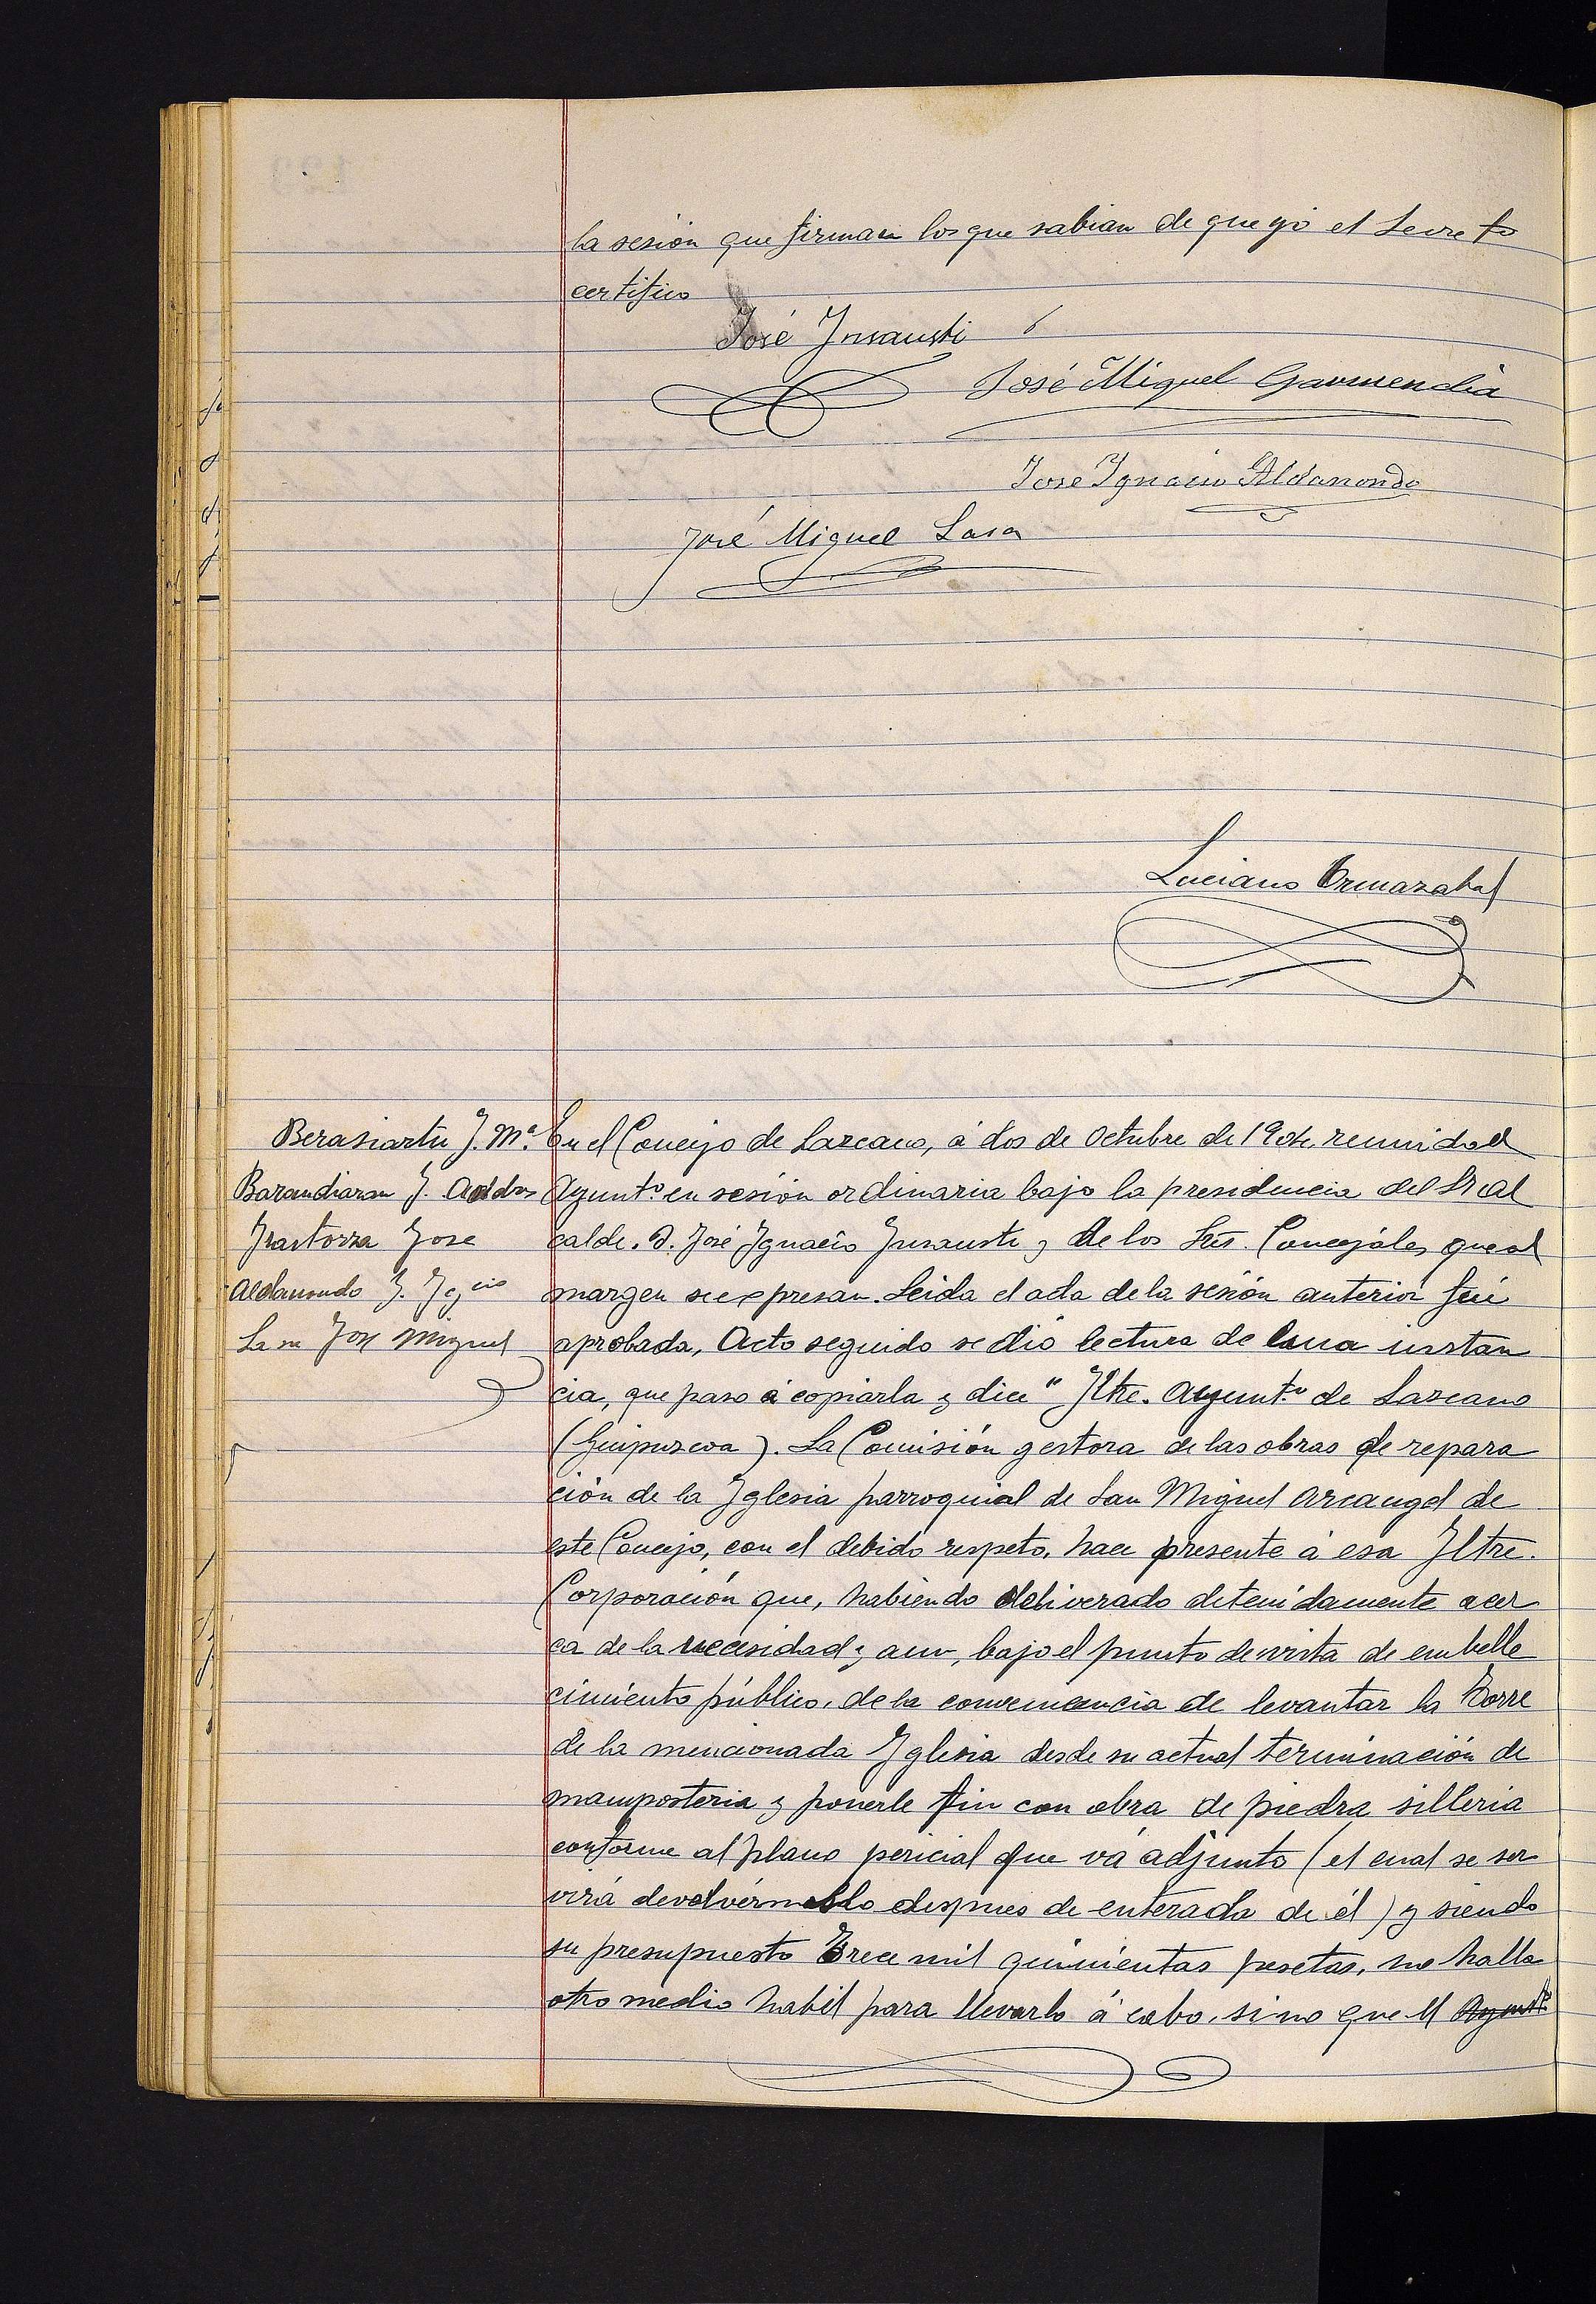 la sesión que firman los que sabian de que yo el Secreto
certifico
José Ynsausti
José Miguel Garmendia
Jose Ygnacio Aldanondo
José Miguel Lasa
Luciano Ormazabal
Berasiartu J. Mª.
Barandiaran J.
Yrastorza Jose
Aldanondo J. Ygcio
Lasa Jose Miguel
En el Concejo de Lazcano, á dos de Octubre de 1904, reunido el
Ayuntº en sesión ordinaria bajo la presidencia del Sr al
calde. D. José Ygnacio Ynsausti y de los Srs. Concejales que al
margen se expresan. Leida el acta de la sesión anterior fué
aprobada, Acto seguido se dió lectura de una instan
cia, que paso á copiarla y dice "Iltre. Ayuntº de Lazcano
(Guipuzcoa). La Comisión gestora de las obras de repara
ción de la Yglesia parroquial de San Miguel Arcangel de
este Concejo, con el debido respeto, hace presente á esa Iltre.
Corporación que, habiendo deliverado detenidamente acer
ca de la necesidad y aun, bajo el punto de vista de embelle
cimiento público, de la conveniencia de levantar la Torre
de la mencionada Yglesia desde su actual terminación de
mamposteria y ponerle fin con obra de piedra silleria
conforme al plano pericial que vá adjunto (el cual se ser
virá devolvérnoslo despues de enterada de él) y siendo
su presupuesto Trece mil quinientas pesetas, no halla
otro medio habil para llevarlo á cabo, sino que el Ayuntº